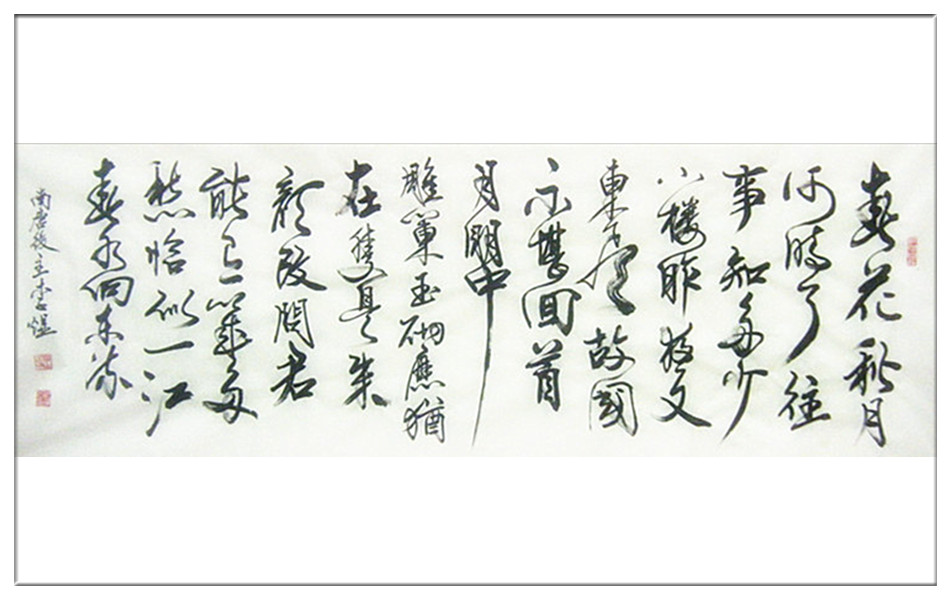 春花秋月
何時了往
事知多少
小樓昨夜又
東風故國
不堪回首
月明中
雕闌玉砌應猶
在隻是朱
顏改問君
能有幾多
愁恰似一江
春水向東流
南唐後主李煜